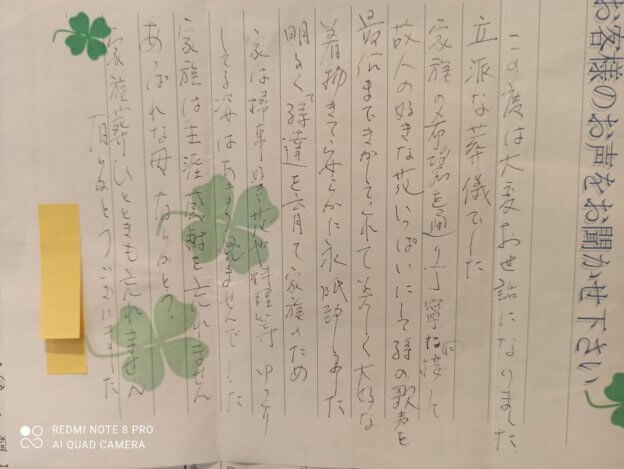 お客様のお声をお聞かせ下さい
この度は大変お世話になりました
立派な葬儀でした
家族の希望を通り丁寧に接して
故人の好きな花いっぱいにして孫の歌声を
最后まできかしてくれて美しく大好な
着物きて安らかに永眠しました
明るくて孫達を育て家族のため
家は掃事好き花や料理等 ゆっくり
してる姿はあまり見ませんでした
家族は生涯感謝を忘れません
あっぱれな母 ありがとう。
家族葬ひとときも忘れません
有りがとうございました
REDMI NOTE 8 PRO
AI QUAD CAMERA